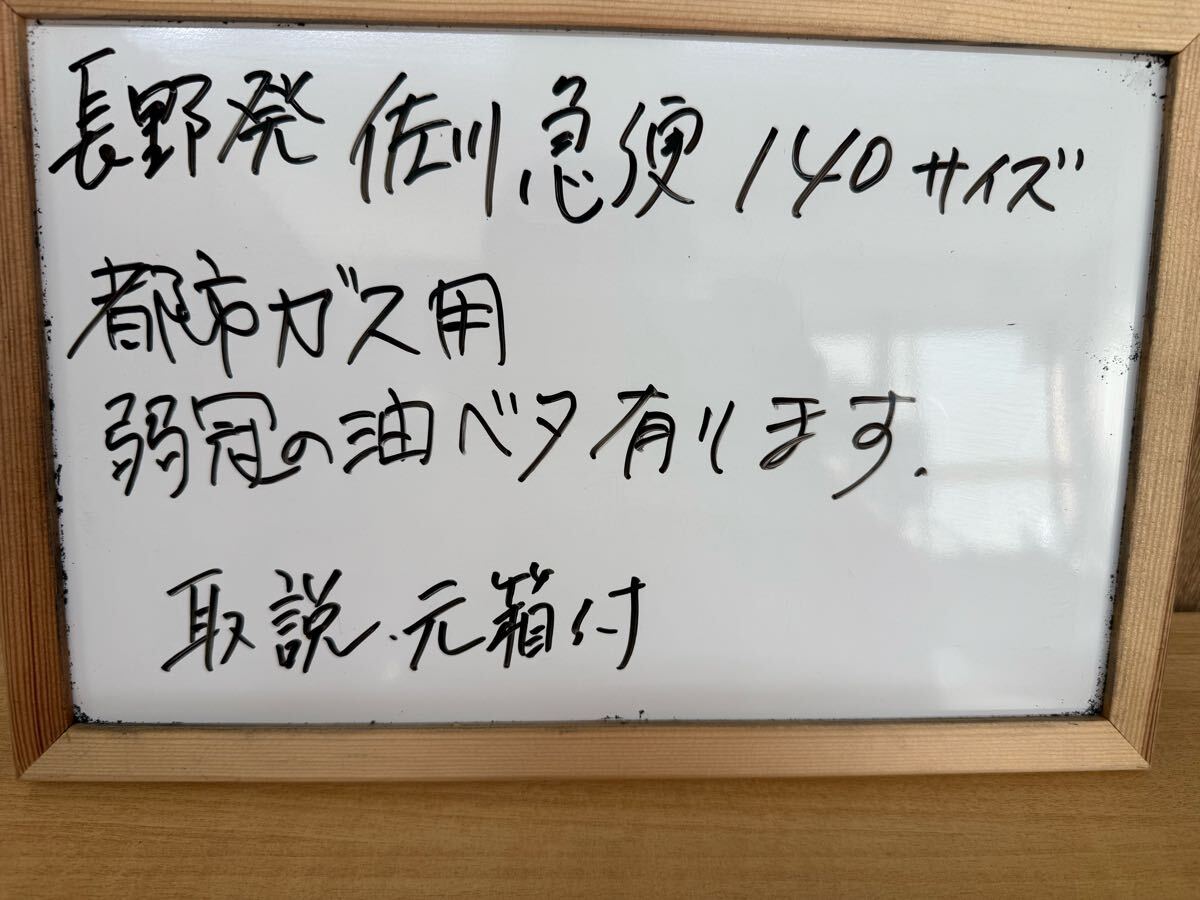 長野発 佐川急便 140サイズ
都市ガス用
弱冠の油ベタ有ります.
取説、元箱付